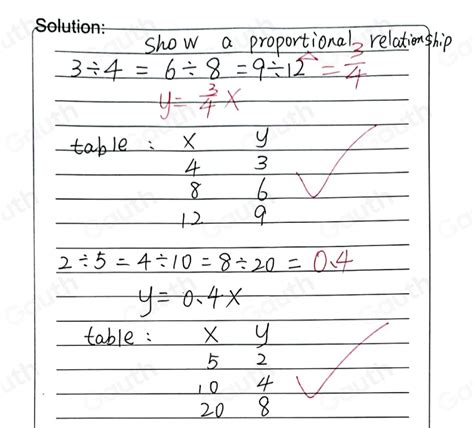 Solution:
show a proportional relationship
3÷4 = 6÷8 = 9÷12 = 3/4
y = 3/4 x
table : x y
4 3
8 6
12 9
2÷5 = 4÷10 = 8÷20 = 0.4
y = 0.4x
table : x y
5 2
10 4
20 8
Gauth